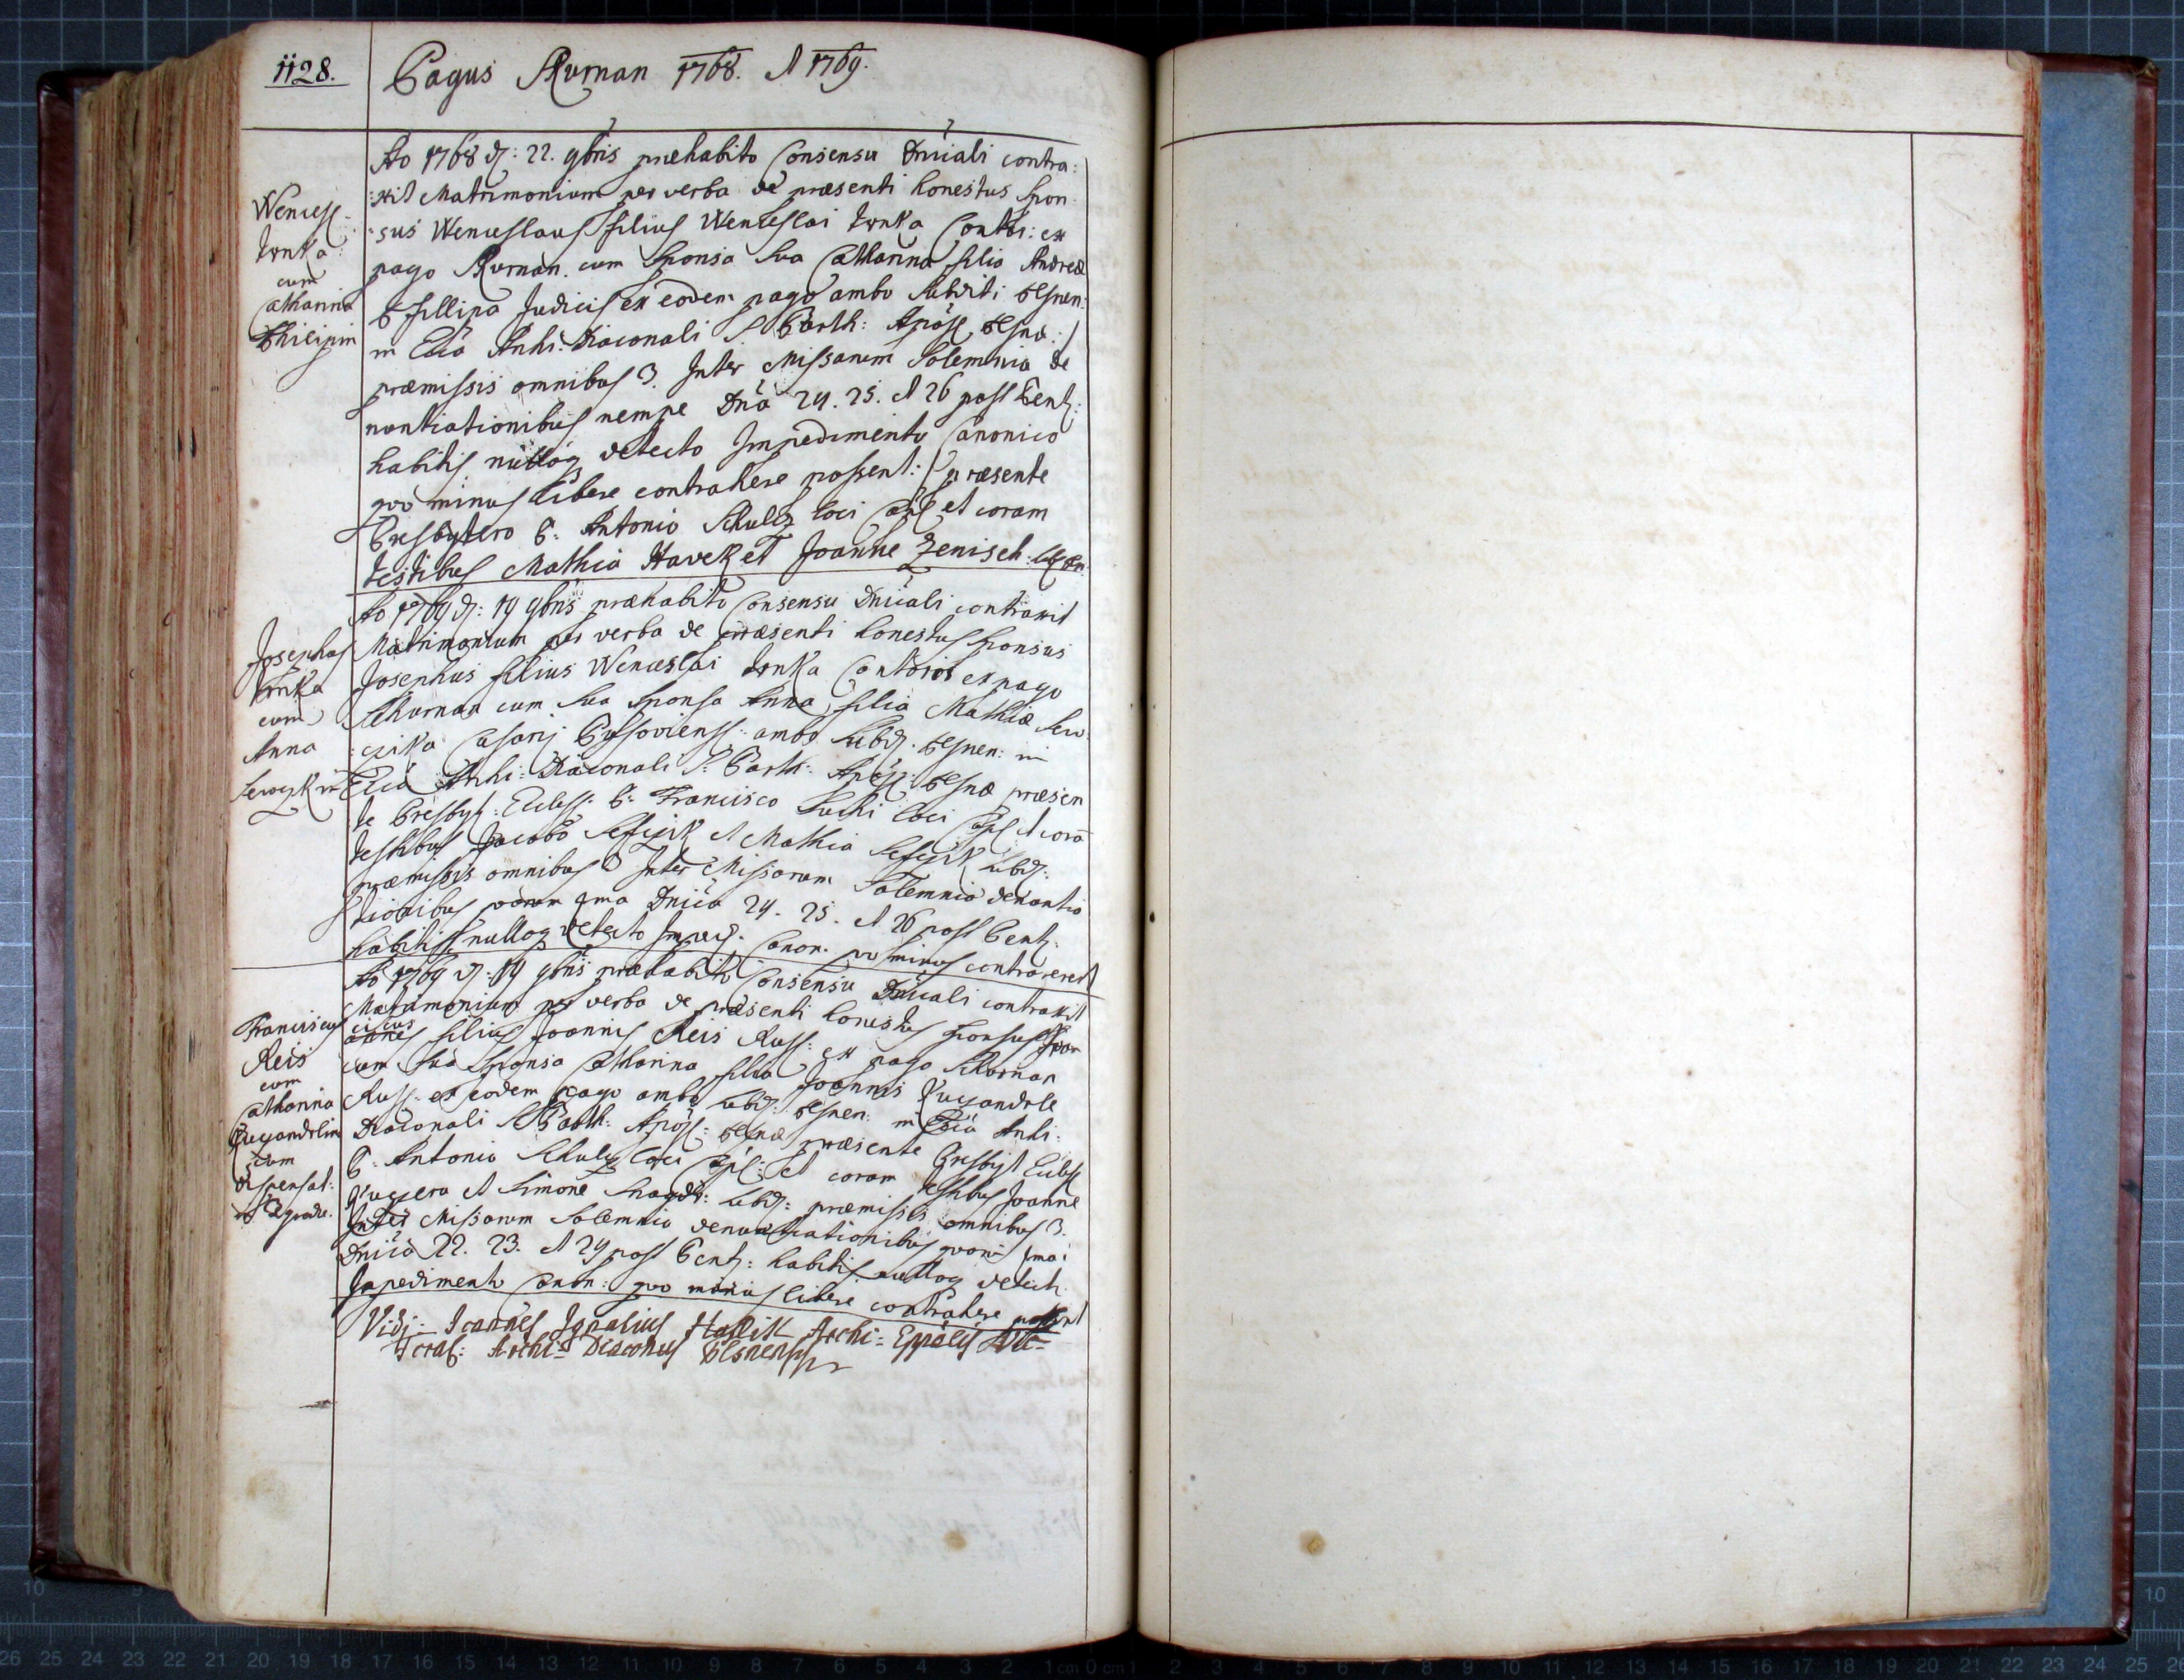 1128.
Pagus Skurnan 1768. et 1769.
Wencesl.
Trnka
cum
Catharina
Philipin
Ao 1768 d: 22. 9bris præhabito Consensu Dnicali contra:
:xit Matrimonium per verba de præsenti honestus Spon
:sus Wenceslaus filius Wenceslai Trnka Contri: ex
pago Skurnan. cum Sponsa Sua Catharina filia Andreæ
Fillipa Judicis ex eodem pago ambo Subditi Plsnen:
in Ecciâ Archi: Diaconali S. Barth: Apost. Plsnæ:
præmissis omnibus 3. Inter Missarum Solemnia de
nuntiationibus nempe Dnca 24. 25. et 26 post Pent:
habitis nulloq detecto Impedimento Canonico
quo minus libere contrahere possent: præsente
Presbytero P: Antonio Schultz loci Capl et coram
testibus Mathia Havek et Joanne Zenisch
Josephus
Trnka
cum
Anna
Sewczik
Ao 1769 d: 19 9bris præhabito Consensu Dnicali contraxit
Matrimonium per verba de præsenti honestus Sponsus
Josephus filius Wenceslai Trnka Contoris ex pago
Skurnan cum Sua Sponsa Anna filia Mathiæ Sew
:czika Casarij ambo Subd: Plsnen: in
Ecciâ Archi: Diaconali S: Barth: Apost: Plsnæ præsen
te Presbyt: Eccles: P: Francisco Suchi loci Capl et corā
testibus Jacobo Sefczik et Mathia Sefczik Subd:
præmissis omnibus 3 Inter Missarum Solemnia denontia
tionibus quarum 1ma Dnica 24. 25. et 26 post Pent:
habitis nulloq detecto Imped: Canon: quo minus contraherent
Franciscus
Reis
cum
Catharina
cum
dispensat:
gradu.
Ao 1769 d: 19 9bris præhabito Consensu Dnicali contraxit
Matrimonium per verba de præsenti honestus Sponsus Fran
ciscus
filius Joannis Reis Russ: ex pago Skurnan
cum Sua Sponsa Catharina filia Joannis
Russ: ex eodem pago ambo Subd: Plsnen: in Ecciâ Archi:
Diaconali S Barth: Apost: Plsnæ præsente Presbyt Eccles
P: Antonio Schulz loci Capl: et coram testibus Joanne
et Simone Subd: præmissis omnibus 3.
Inter Missarum Solemnia denuntiationibus quarū 1ma
Dnica 22. 23. et 24 post Pent: habitis nulloq detecto
Impedimento Canon: quo minus libere contrahere possent
Vidi: Joannes Ignatius Haslik Archi: Eppalis Vic-
Foran: Archi: Diaconus Plsnensis